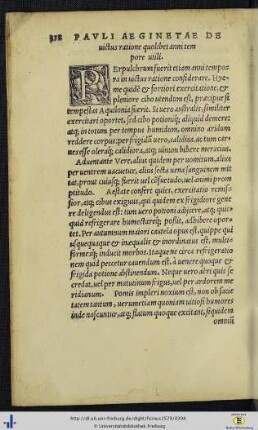 312 PAVLI AEGINETAE DE
victus ratione quolibet anni tem
pore vtili.
PErpulchrum fuerit etiam anni tempora
in victus ratione considerare. Hyeme
quidẽ & fortiori exercitatione, &
pleniore cibo vtendum est, præcipue si
tempestas Aquilonia fuerit. Si vero australis, similiter
exercitari oportet, sed cibo potioniq; aliquid demere:
atq; in totum per tempus humidum, omnino aridum
reddere corpus: per frigidũ vero, calidius, ac tum carnes
vberius, oleraq; calidiora, atq; vinum bibere meracius.
Adventante Vere, alius quidem per vomitum, alius
per ventrem vacuetur, alius secta vena sanguinem mittat,
prout cuiusq; fuerit vel cõsuetudo, vel animi promptitudo.
Aestate confert quies, exercitatio remissior,
atq; cibus exiguus, qui quidem ex frigidiore genere
deligendus est: tum vero potioni adijcere, atq; quicquid
refrigerare humectareq; possit, adhibere oportet.
Per autumnum maiori cautela opus est, quippe quũ
vsquequaque & inæqualis & inordinatus est, multiformesq;
inducit morbos. Itaque ne circa refrigerationem
quid peccetur cauendum est: à venere quoque &
frigida potione abstinendum. Neque vero abri quis se
credat, vel per matutinum frigus, vel per ardorem meridianum.
Pomis impleri noxium est, non ob satietatem
tantum, verumetiam quoniam vitiosi humores
inde nascuntur, atq; flatum quoque excitant, siquidem
omniũ
http://dl.ub.uni-freiburg.de/diglit/ficinus1529/0334
© Universitätsbibliothek Freiburg